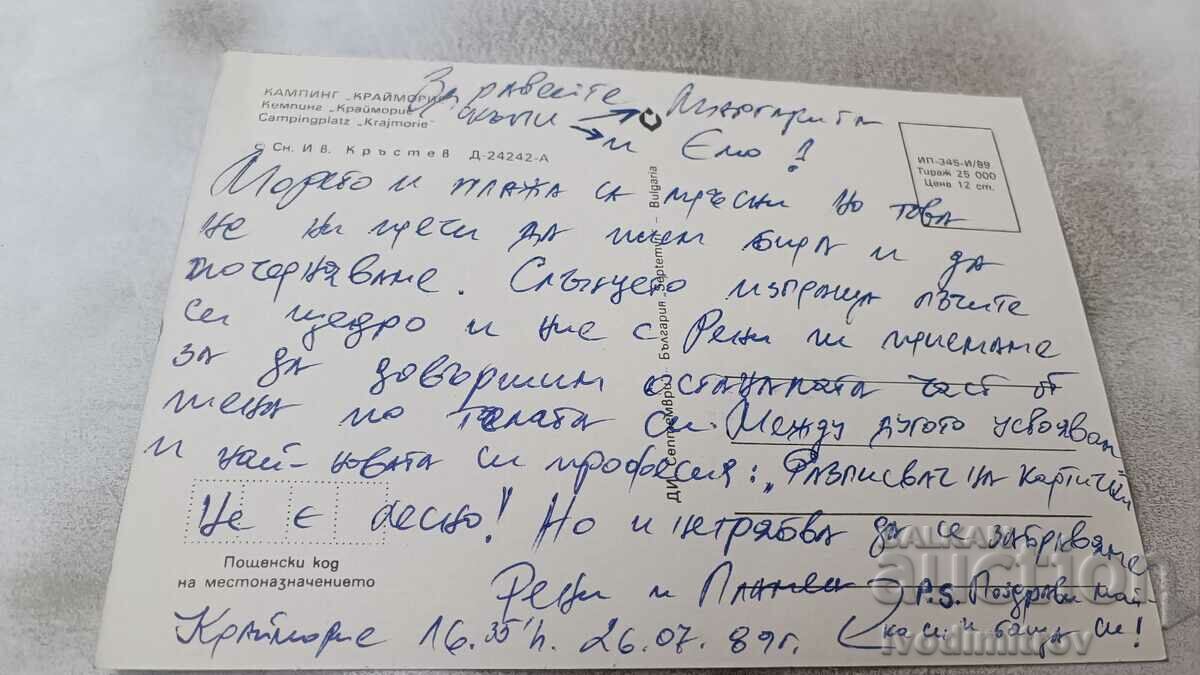 КАМПИНГ „КРАЙМОРИЕ“
Кемпинг „Крайморие“
Campingplatz „Krajmorie“
© Сн. Ив. Кръстев Д-24242-А
Здравейте
скъпи → Маргарита
→ и Емо!
ИП-345-И/89
Тираж 25 000
Цена 12 ст.
Морето и плажа са мръсни но това
не ни пречи да пием бира и да
почерняваме. Слънцето изпраща лъчите
си щедро и ние с Рени ги приемаме
за да довършим останалата част от
по телата си. Между другото усвоявам
и най-новата си професия: „Разписвач на картички
Не е лесно! Но и нетрябва да се забравяме
Рени и Пламен
P.S. Поздрави май-
ка си и баща си!
Крайморие 16.35 ч. 26.07.89г.
Пощенски код
на местоназначението
ДИ „Септември“ – България „Septemvri“ – Bulgaria
BALKAN
auction
ivodimitrov